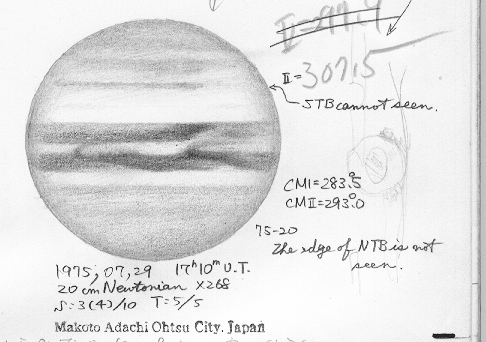 II=297.9
II=307.5
STB cannot seen.
CMI=283.°5
CMII=293.°0
75-20
The edge of NTB is not
seen.
1975, 07, 29 17ʰ10ᵐ U.T.
20 cm Newtonian ×268
S=3(4)/10 T=5/5
Makoto Adachi Ohtsu City. Japan